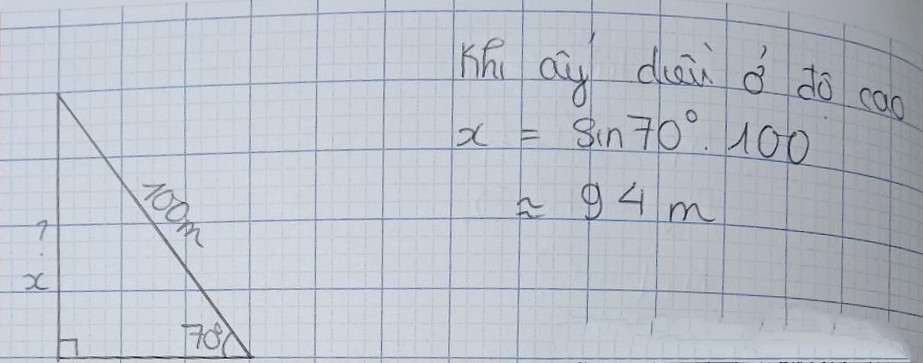 Khi ấy diều ở độ cao
x = Sin70°.100
≈ 94 m
100m
?
x
70°